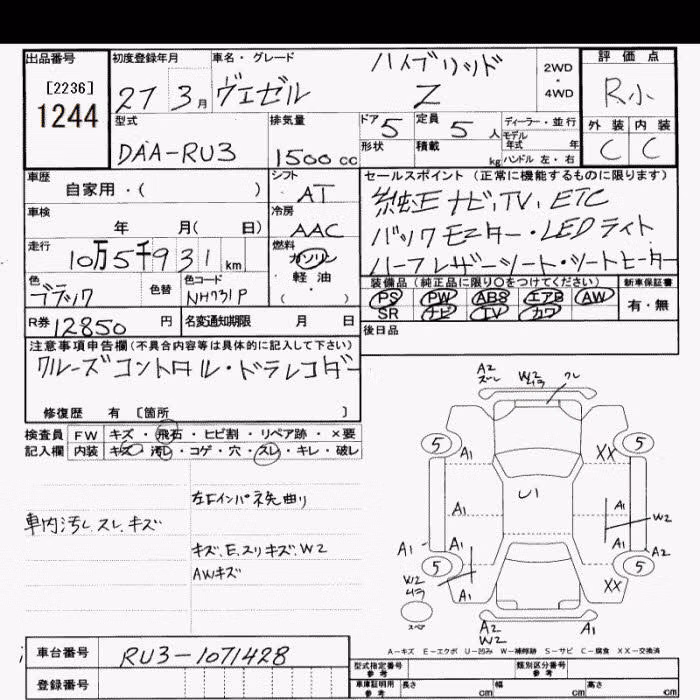 出品番号 初度登録年月 車名・グレード ハイブリッド 2WD・4WD 評価点
[2236] 27 3月 ヴェゼル Z R小
1244
型式 排気量 ドア 5 定員 5人 ディーラー・並行 外装 内装
モデル年式 年
DAA-RU3 1500cc 形状 積載 kg ハンドル 左・右 C C
車歴 シフト セールスポイント (正常に機能するものに限ります)
自家用・( ) AT 純正ナビ,TV,ETC
車検 冷房 バックモニター・LEDライト
年 月( 日) AAC ハーフレザーシート・シートヒーター
走行 燃料
10万5千931km ガソリン
軽油
・
( )
色 色替 色コード 装備品 (純正品に限り○をつけてください) 新車保証書
ブラック NH731P PS PW ABS エアB AW 有・無
SR ナビ TV カワ
R券 12850円 名変通知期限 月 日 後日品
注意事項申告欄(不具合内容等は具体的に記入して下さい)
クルーズコントロル・ドラレコダー
修復歴 有 〔箇所 〕
検査員 FW キズ・飛石・ヒビ割・リペア跡・×要
記入欄 内装 キズ・汚れ・コゲ・穴・スレ・キレ・破レ
左Fインパネ先曲り
車内汚レ.スレ.キズ
キズ.E.スリキズ.W2
AWキズ
A2 W2 クレ
5 5
A1 XX
U1
A1 A1
W2
A1 A1 A1 A2
5 5
W2
A1 XX
スペア A2 A1
W2
A-キズ E-エクボ U-凹み W-補修跡 S-サビ C-腐食 XX-交換済
車台番号 RU3-1071428
登録番号
型式指定番号 参考 類別区分番号 参考
車庫証明用 参考 長さ cm 幅 cm 高さ cm